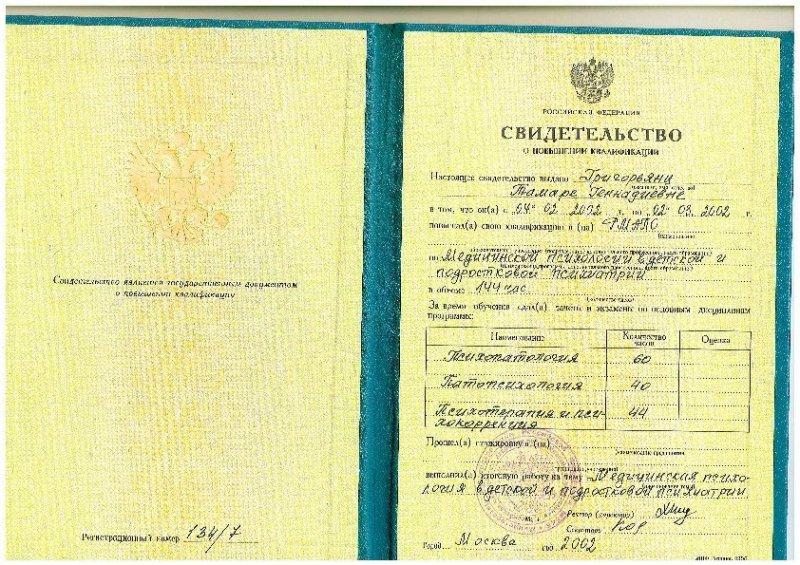 Свидетельство является государственным документом
о повышении квалификации
Регистрационный номер 134/7
РОССИЙСКАЯ ФЕДЕРАЦИЯ
СВИДЕТЕЛЬСТВО
О ПОВЫШЕНИИ КВАЛИФИКАЦИИ
Настоящее свидетельство выдано Григорьянц
Тамаре Геннадиевне
в том, что он(а) с "04" 02 2002 г. по "02" 03. 2002 г.
повысил(а) свою квалификацию в (на) РМАПО
по Медицинской психологии в детской и
подростковой психиатрии
в объеме 144 час.
За время обучения сдал(а) зачеты и экзамены по основным дисциплинам
программы:
Наименование Количество часов Оценка
Психопатология 60
Патопсихология 40
Психотерапия и пси-
хокоррекция 44
Прошел(а) стажировку в (на)
выполнил(а) итоговую работу на тему Медицинская психо-
логия в детской и подростковой психиатрии
Ректор (директор)
Секретарь
Город Москва год 2002